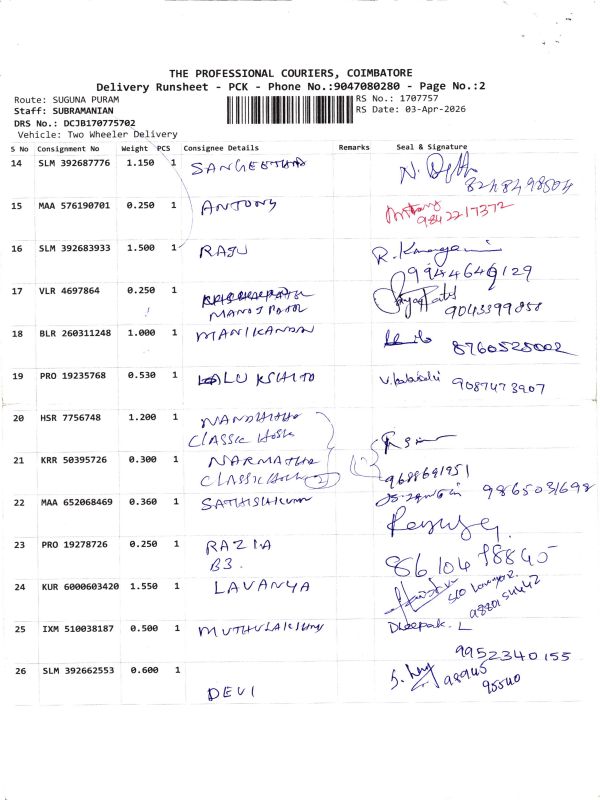 THE PROFESSIONAL COURIERS, COIMBATORE
Delivery Runsheet - PCK - Phone No.:9047080280 - Page No.:2
Route: SUGUNA PURAM RS No.: 1707757
Staff: SUBRAMANIAN RS Date: 03-Apr-2026
DRS No.: DCJB170775702
Vehicle: Two Wheeler Delivery
S No Consignment No Weight PCS Consignee Details Remarks Seal & Signature
14 SLM 392687776 1.150 1 SANGEETHA
15 MAA 576190701 0.250 1 ANTONY Antony
9842217372
16 SLM 392683933 1.500 1 RAJU R.
9944649129
17 VLR 4697864 0.250 1
MANOJ PATEL 9043399858
18 BLR 260311248 1.000 1 MANIKANDAN 8760525002
19 PRO 19235768 0.530 1 9087473907
20 HSR 7756748 1.200 1 NANDHITHA
CLASSIC
21 KRR 50395726 0.300 1 NARMATHA
CLASSIC 9688691951
22 MAA 652068469 0.360 1 SATHISHKUMAR 9865031698
23 PRO 19278726 0.250 1 RAZIA
B3.
24 KUR 6000603420 1.550 1 LAVANYA
25 IXM 510038187 0.500 1 MUTHULAKSHMY Dheepak. L
9952340155
26 SLM 392662553 0.600 1
DEVI 98945
95540